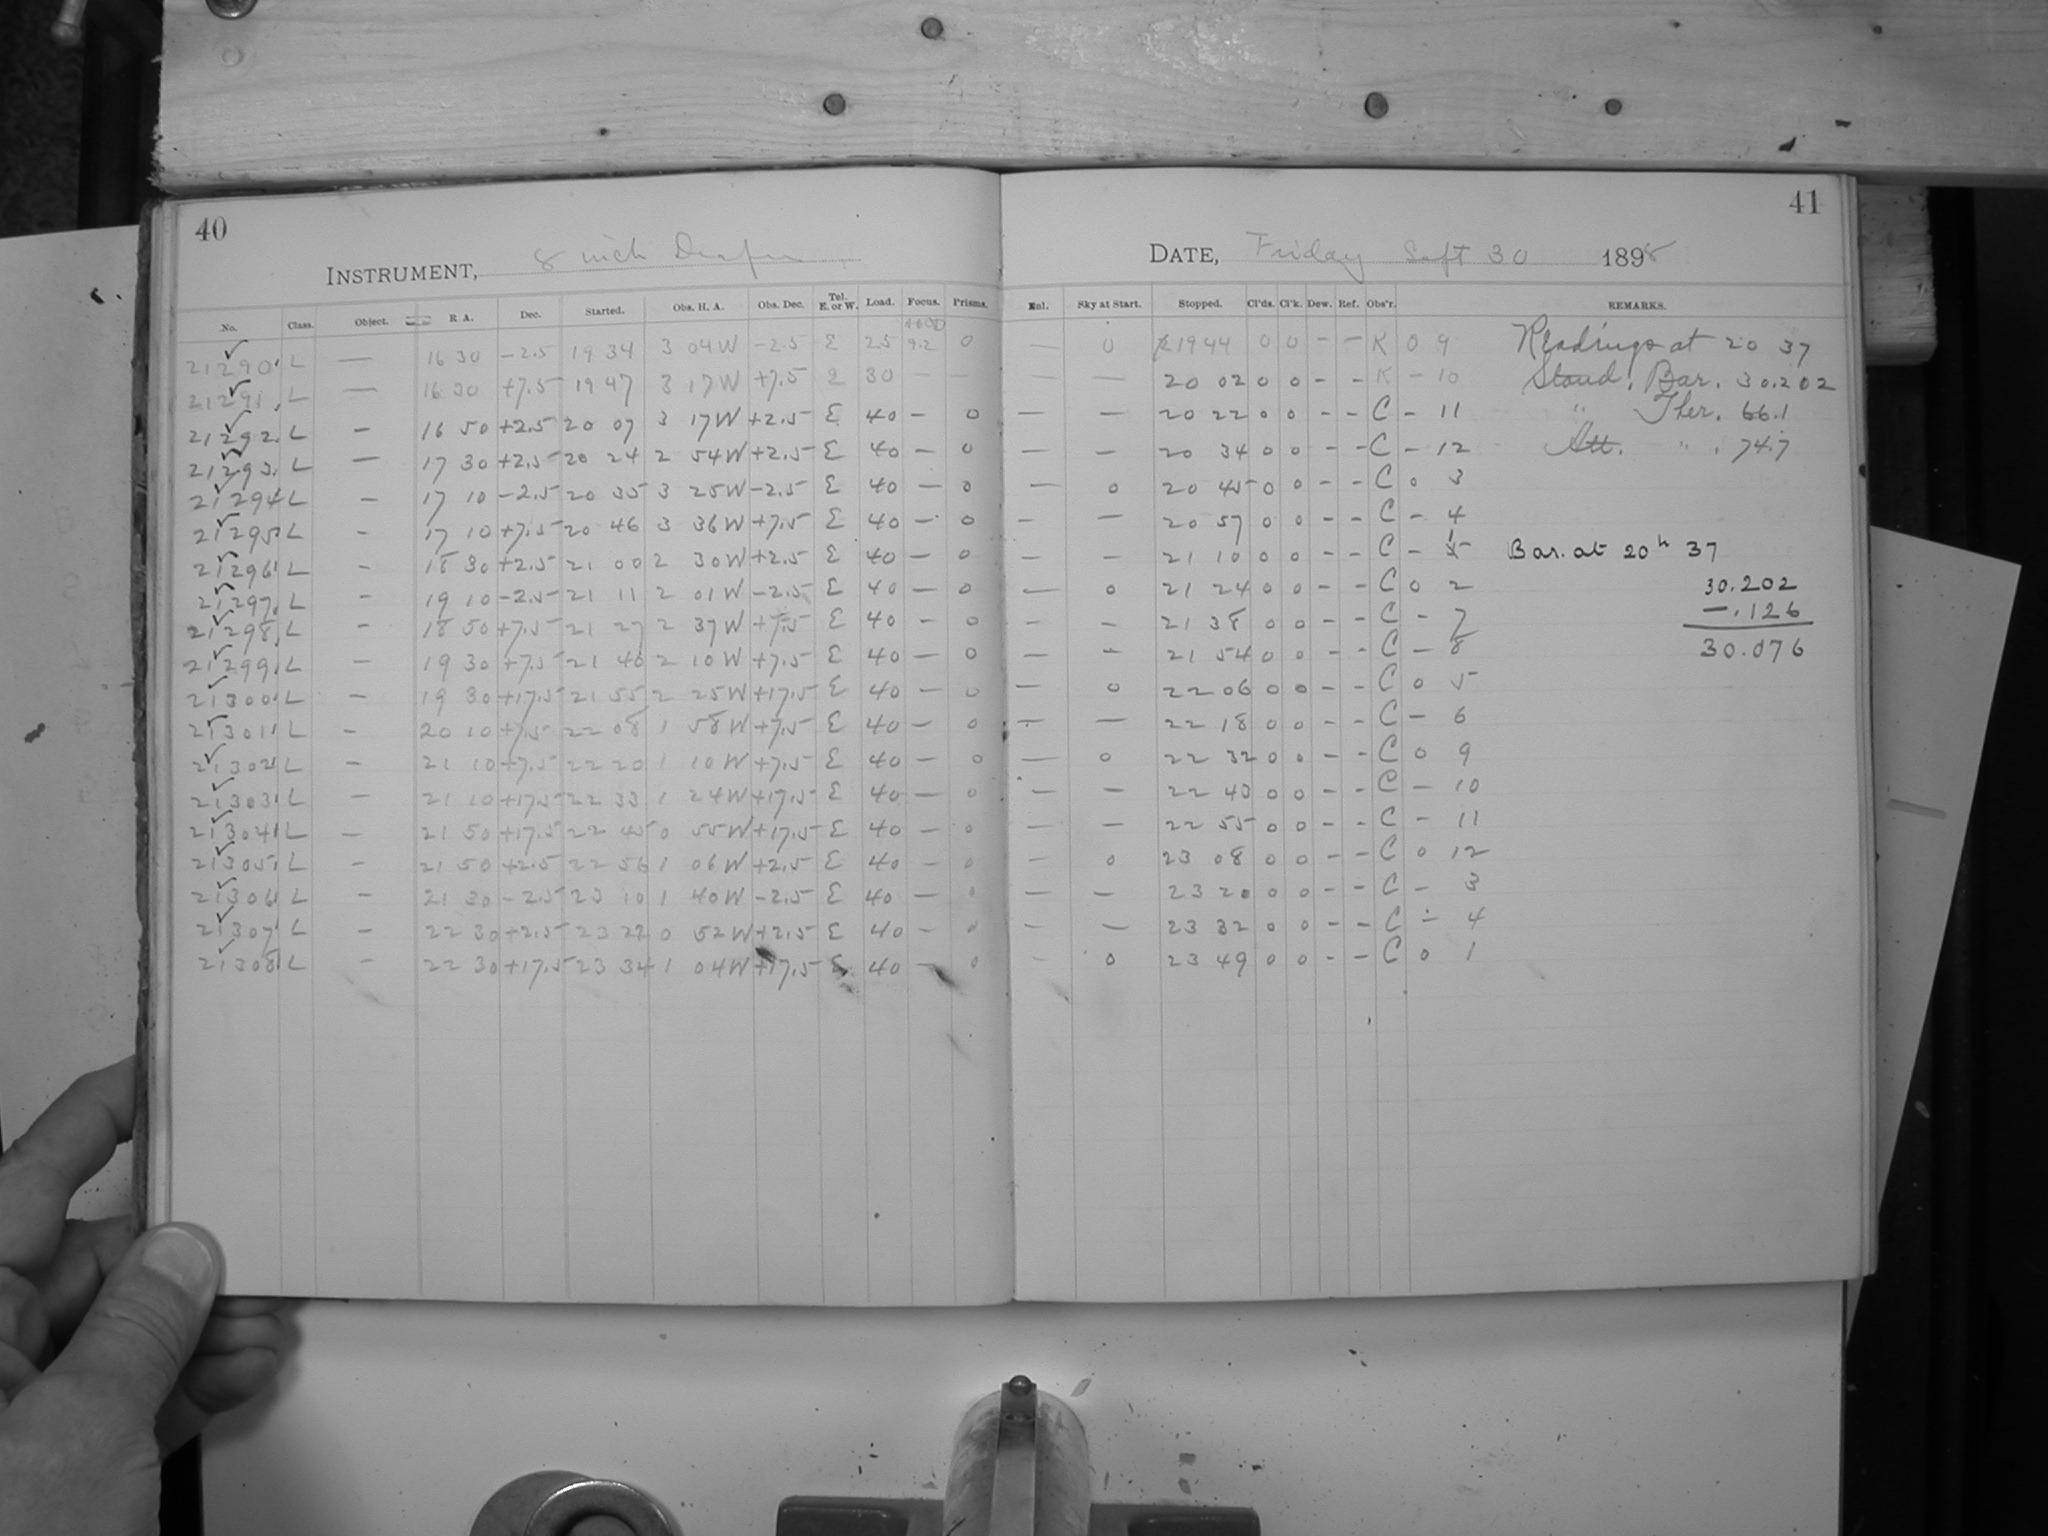 40
INSTRUMENT, 8 inch Draper
No. Class. Object. R A. Dec. Started. Obs. H. A. Obs. Dec. Tel. E. or W. Load. Focus. Prisms.
21290 L — 16 30 -2.5 19 34 3 04W -2.5 E 25 9.2 0
21291 L — 16 30 +7.5 19 47 3 17W +7.5 E 30 — —
21292 L — 16 50 +2.5 20 07 3 17W +2.5 E 40 — 0
21293 L — 17 30 +2.5 20 24 2 54W +2.5 E 40 — 0
21294 L — 17 10 -2.5 20 35 3 25W -2.5 E 40 — 0
21295 L — 17 10 +7.5 20 46 3 36W +7.5 E 40 — 0
21296 L — 18 30 +2.5 21 00 2 30W +2.5 E 40 — 0
21297 L — 19 10 -2.5 21 11 2 01W -2.5 E 40 — 0
21298 L — 18 50 +7.5 21 27 2 37W +7.5 E 40 — 0
21299 L — 19 30 +7.5 21 40 2 10W +7.5 E 40 — 0
21300 L — 19 30 +17.5 21 55 2 25W +17.5 E 40 — 0
21301 L — 20 10 +7.5 22 08 1 58W +7.5 E 40 — 0
21302 L — 21 10 +7.5 22 20 1 10W +7.5 E 40 — 0
21303 L — 21 10 +17.5 22 33 1 24W +17.5 E 40 — 0
21304 L — 21 50 +17.5 22 45 0 55W +17.5 E 40 — 0
21305 L — 21 50 +2.5 22 56 1 06W +2.5 E 40 — 0
21306 L — 21 30 -2.5 23 10 1 40W -2.5 E 40 — 0
21307 L — 22 30 +2.5 23 22 0 52W +2.5 E 40 — 0
21308 L — 22 30 +17.5 23 34 1 04W +17.5 E 40 — 0
41
DATE, Friday Sept 30 1898
Enl. Sky at Start. Stopped. Cl'ds. Cl'k. Dew. Ref. Obs'r. REMARKS.
— 0 19 44 0 0 - - K 0 9 Readings at 20 37
— — 20 02 0 0 - - K - 10 Stand. Bar. 30.202
— — 20 22 0 0 - - C - 11 " Ther. 66.1
— — 20 34 0 0 - - C - 12 Att. " . 74.7
— 0 20 45 0 0 - - C 0 3
— — 20 57 0 0 - - C - 4
— — 21 10 0 0 - - C - 1 Bar. at 20h 37
— 0 21 24 0 0 - - C 0 2 30.202
— — 21 38 0 0 - - C - 7 -.126
— — 21 54 0 0 - - C - 8 30.076
— 0 22 06 0 0 - - C 0 5
— — 22 18 0 0 - - C - 6
— 0 22 32 0 0 - - C 0 9
— — 22 43 0 0 - - C - 10
— — 22 55 0 0 - - C - 11
— 0 23 08 0 0 - - C 0 12
— — 23 20 0 0 - - C - 3
— — 23 32 0 0 - - C - 4
— 0 23 49 0 0 - - C 0 1